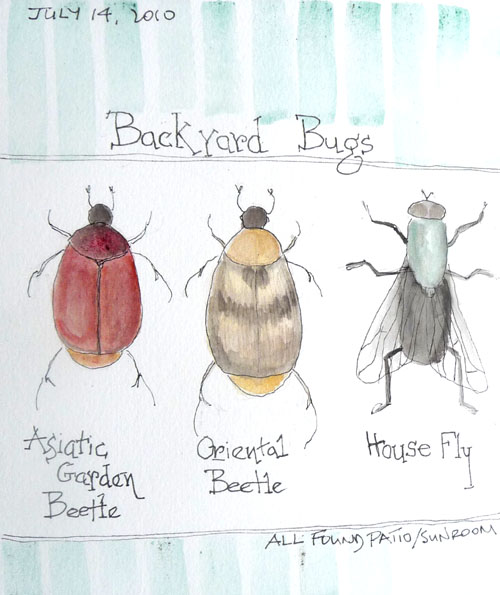 JULY 14, 2010
Backyard Bugs
Asiatic
Garden
Beetle
Oriental
Beetle
House Fly
ALL FOUND PATIO/SUNROOM